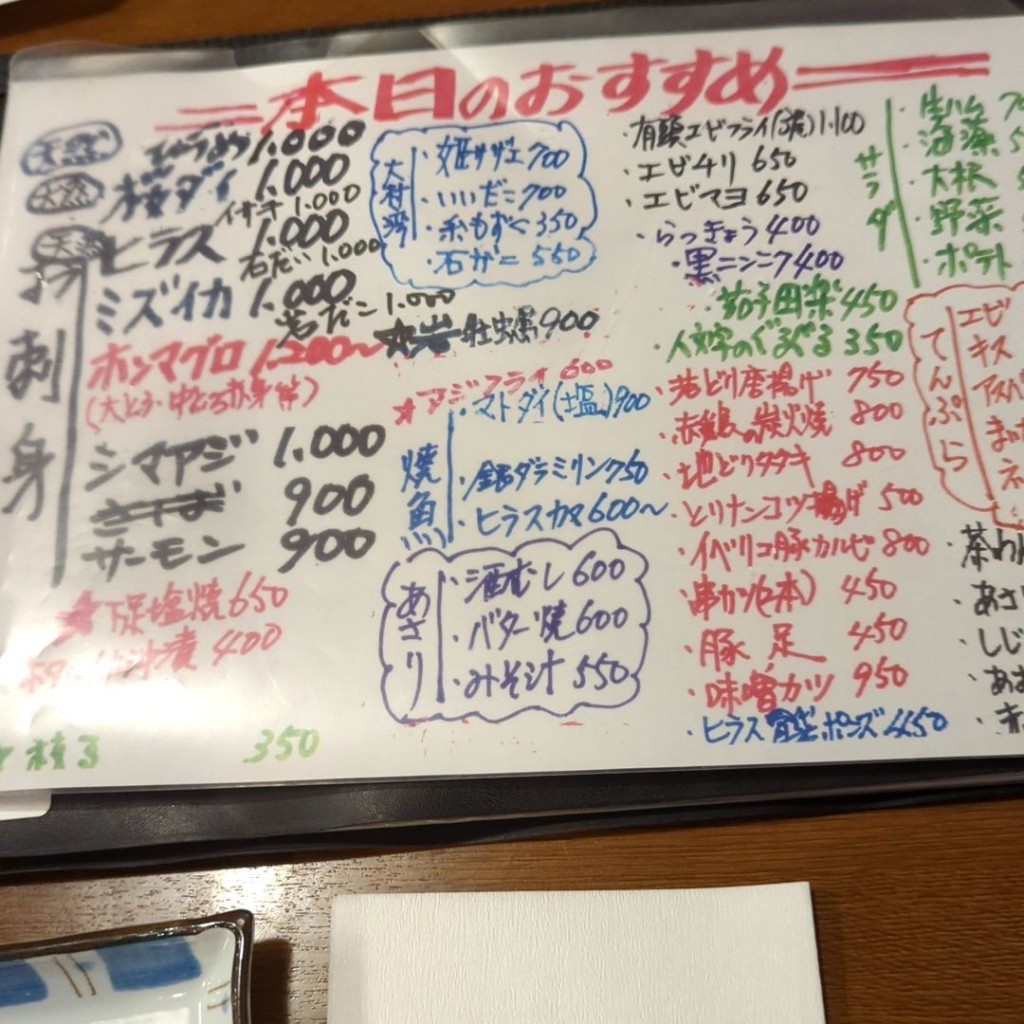 本日のおすすめ
天然
天然
天然
お刺身
1.000
桜ダイ 1.000
イサキ 1.000
ヒラス 1.000
石だい 1.000
ミズイカ 1.000
岩だこ 1.000
ホンマグロ 1.200〜
(大とろ・中とろ・赤身
シマアジ 1.000
900
サーモン 900
塩焼 650
400
枝豆 350
大村湾
・姫サザエ 700
・いいだこ 700
・糸もずく 350
・石がに 550
牡蠣 900
★アジフライ 600
焼魚
・マトダイ(塩) 900
・銀ダラミリン 750
・ヒラスカマ 600〜
あさり
・酒むし 600
・バター焼 600
・みそ汁 550
・有頭エビフライ 1.100
・エビチリ 650
・エビマヨ 650
・らっきょう 400
・黒ニンニク 400
・茄子田楽 450
・人文字のぐるぐる 350
・若どり唐揚げ 750
・赤鶏の炭火焼 800
・地どりタタキ 800
・とりナンコツ揚げ 500
・イベリコ豚カルビ 800
・串カツ(2本) 450
・豚足 450
・味噌カツ 950
・ヒラス ポンズ 450
サラダ
・生ハム
・海藻
・大根
・野菜
・ポテト
てんぷら
エビ
キス
アスパ
・茶わ
・あさ
・しじ
・あお
・赤